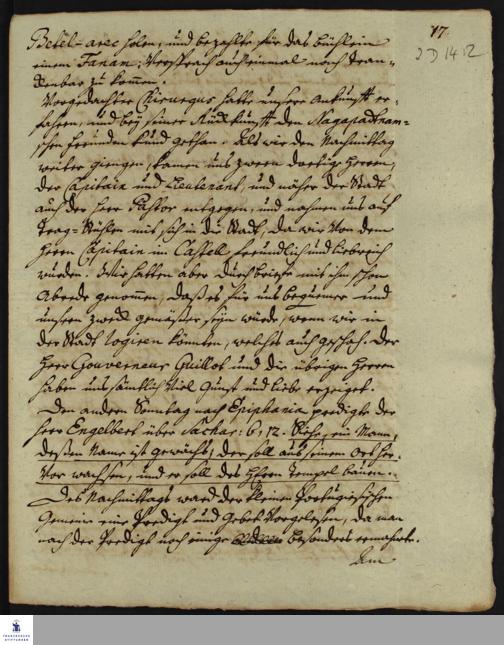 17.
2 D 14 12
Betel-arec holen, und bezahlte für das büchlein
einen Fanam; Versprach auch einmal nach Tran-
kenbar zu kommen.
Vorgedachter Chirurgus hatte unsere Ankunfft er-
fahren, und bey seiner Rückkunfft den Nagapadnam-
schen freunden kund gethan. Als wir den Nachmittag
weiter giengen, kamen uns zween dortige Herren,
der Capitain und Lieutenant, und näher der Stadt
auch der Herr Pastor entgegen, und nahmen uns auf
Trag-Stühlen mit sich in die Stadt, da wir von dem
Herrn Capitain im Castell freundlich und liebreich
wurden. Wir hatten aber durch briefe mit ihm schon
Abrede genommen, daß es für uns bequemer und
unserm zweck gemäßer seyn würde, wenn wir in
der Stadt logiren könnten, welches auch geschah. Der
Herr Gouverneur Guillot und die übrigen Herren
haben uns sämtlich viel Gunst und liebe erzeiget.
Den andern Sonntag nach Epiphania predigte der
Herr Engelbert über Sachar: 6, 12. Siehe, ein Mann,
deßen Name ist gewächs; der soll aus seinem Ort her-
vor wachsen, und er soll des HErrn Tempel bauen.
Des Nachmittags ward der kleinen Portugiesischen
Gemeine eine Predigt und Gebet vorgelesen, da man
nach der Predigt noch einige besonders ermahnte.
Am
FRANCKESCHE
STIFTUNGEN